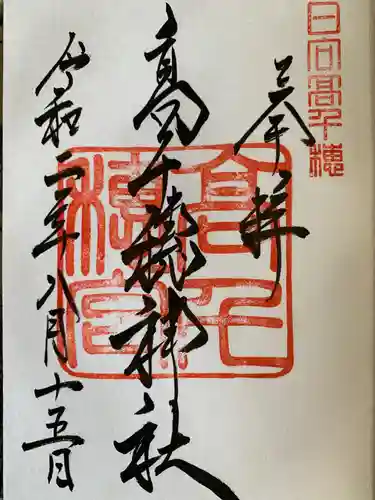 日向高千穂
奉拝
高千穂神社
高千穂宮
令和二年八月十五日